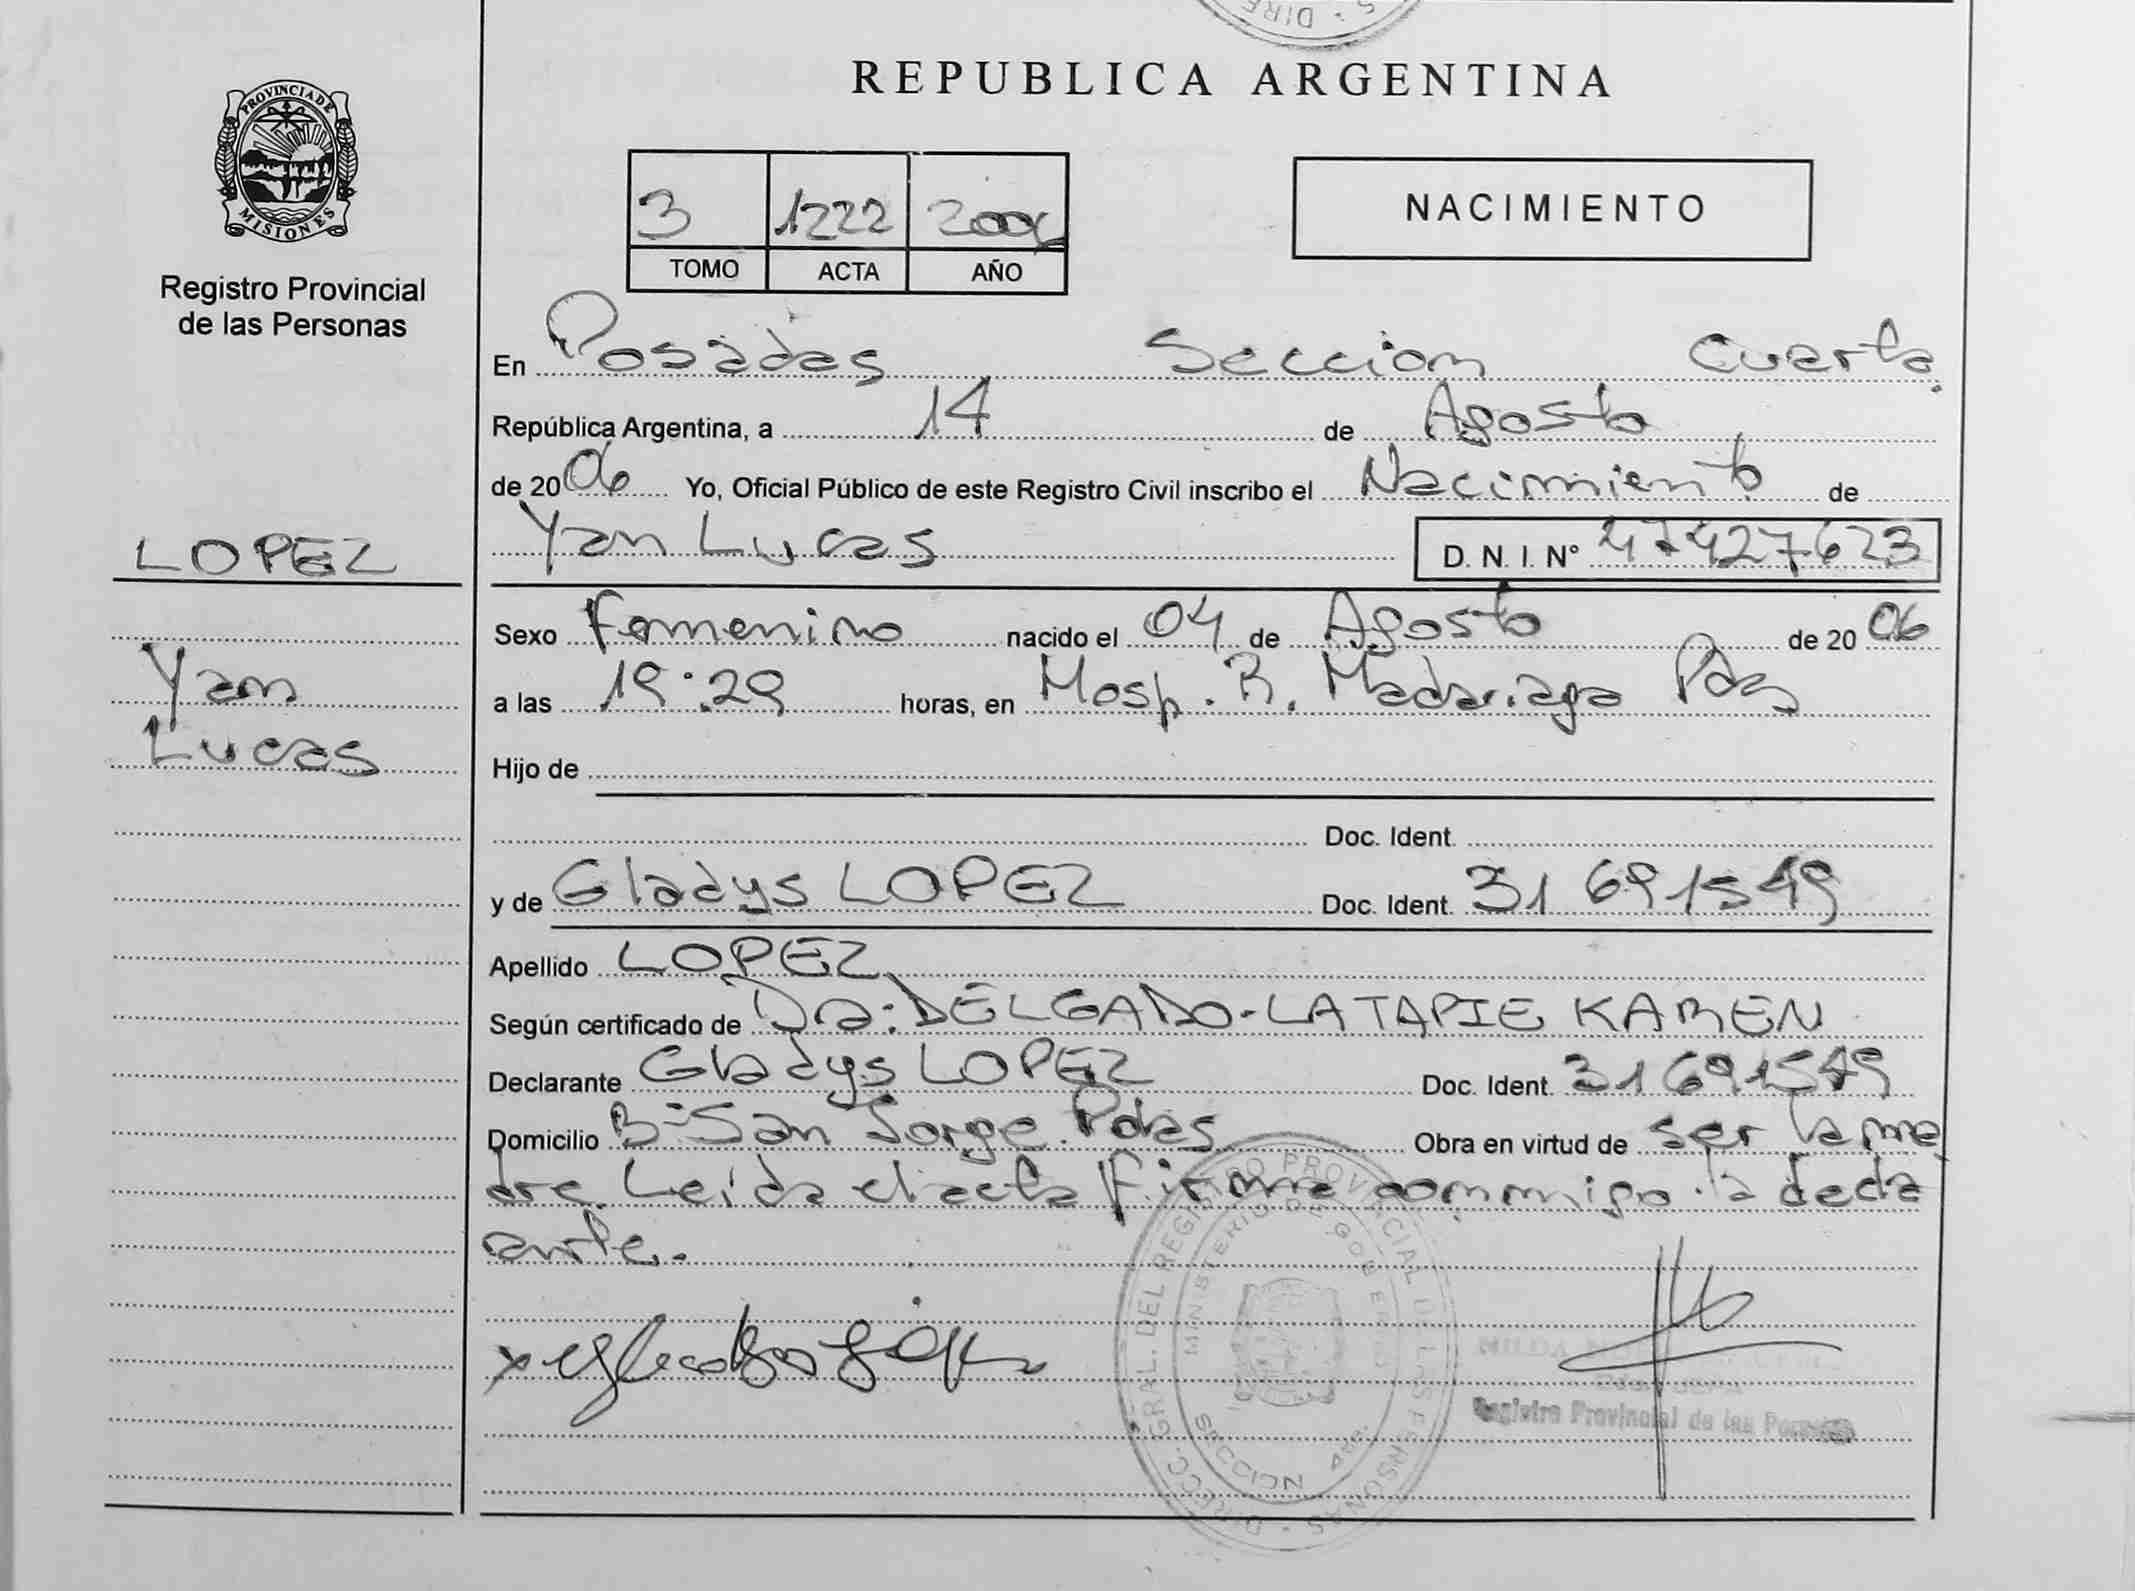 S · DIRE
REPUBLICA ARGENTINA
PROVINCIA DE
MISIONES
Registro Provincial
de las Personas
3 1222 2006
TOMO ACTA AÑO
NACIMIENTO
En Posadas Seccion Cuarta.
República Argentina, a 14 de Agosto
de 2006 Yo, Oficial Público de este Registro Civil inscribo el Nacimiento de
LOPEZ
Yan Lucas D. N. I. N° 47427623
Sexo Femenino nacido el 04 de Agosto de 2006
Yan
a las 19:29 horas, en Hosp. R. Madariaga Pdas
Lucas
Hijo de
Doc. Ident.
y de Gladys LOPEZ Doc. Ident. 31 691549
Apellido LOPEZ
Según certificado de Dra: DELGADO-LATAPIE KAREN
Declarante Gladys LOPEZ Doc. Ident. 31691549
Domicilio B: San Jorge. Pdas Obra en virtud de ser la ma
dre. Leida el acta Firma conmigo la decla
ante.
DIRECC. GRAL. DEL REGISTRO PROVINCIAL DE LAS PERSONAS
MINISTERIO DE GOBIERNO
SECCION 4ta.
Registro Provincial de las Personas